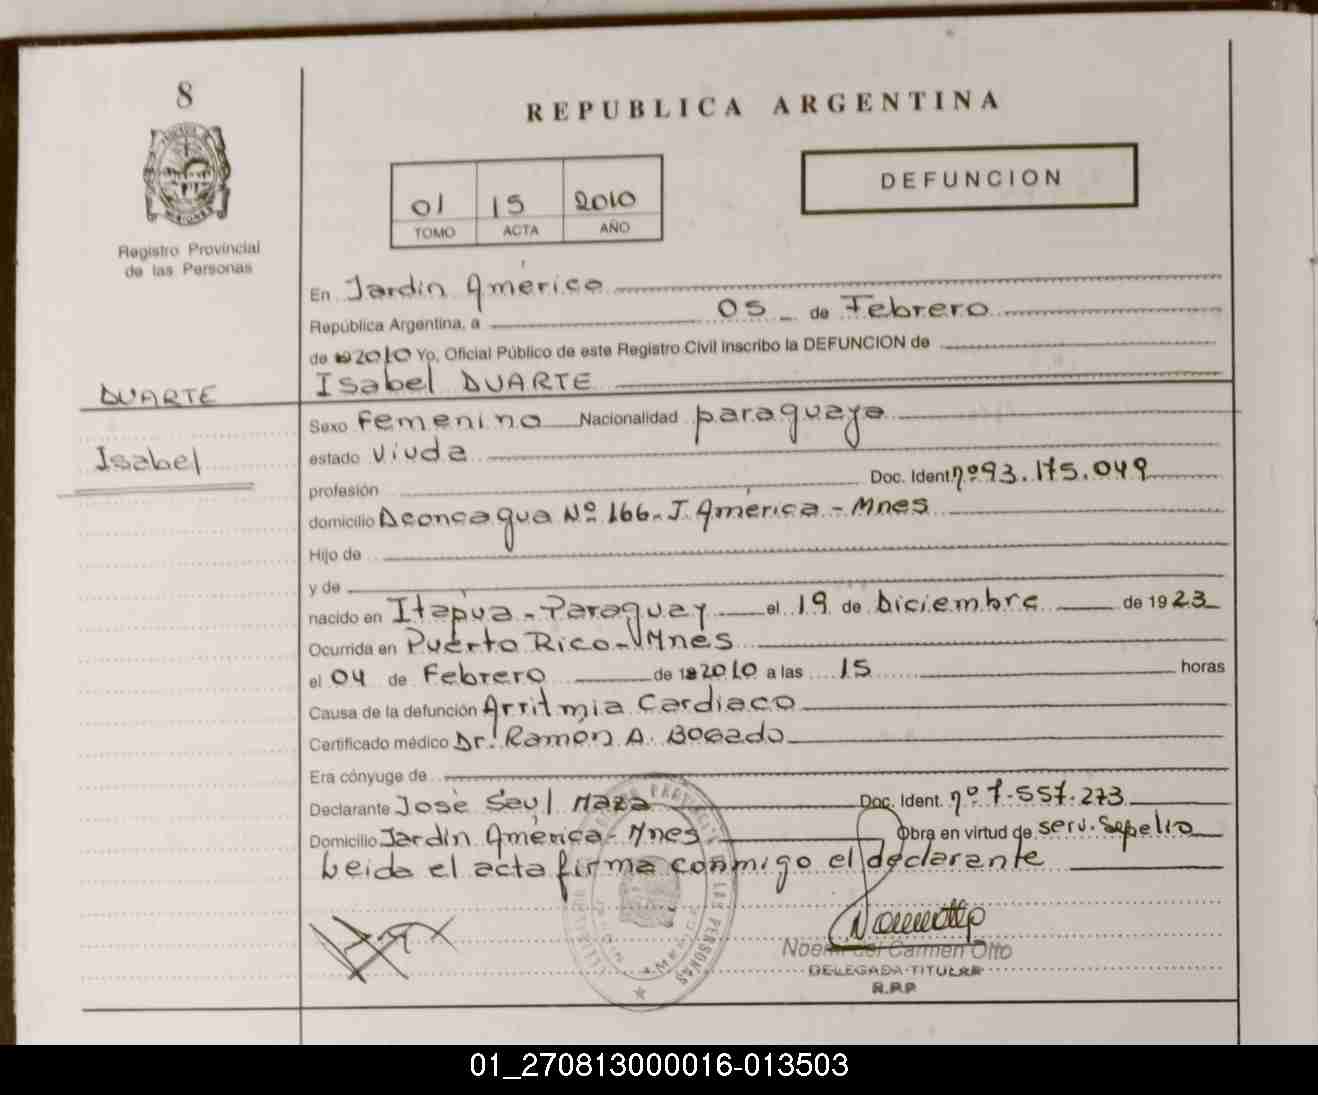 8
REPUBLICA ARGENTINA
DEFUNCION
01 15 2010
TOMO ACTA AÑO
Registro Provincial
de las Personas
En Jardín América
República Argentina, a 05 de Febrero
de 2010 Yo, Oficial Público de este Registro Civil inscribo la DEFUNCION de
DUARTE
Isabel DUARTE
Isabel
Sexo Femenino Nacionalidad paraguaya
estado Viuda
profesión Doc. Ident. nº 93.175.049
domicilio Aconcagua Nº 166 - J. América - Mnes
Hijo de
y de
nacido en Itapúa - Paraguay el 19 de Diciembre de 1923
Ocurrida en Puerto Rico - Mnes
el 04 de Febrero de 2010 a las 15 horas
Causa de la defunción Arritmia Cardiaca
Certificado médico Dr. Ramón A. Bogado
Era cónyuge de
Declarante José Maza Doc. Ident. nº 7.557.273
Domicilio Jardín América - Mnes Obra en virtud de serv. Sepelio
Leida el acta firma conmigo el declarante
Noemi del Carmen Otto
DELEGADA TITULAR
R.P.P.
01_270813000016-013503